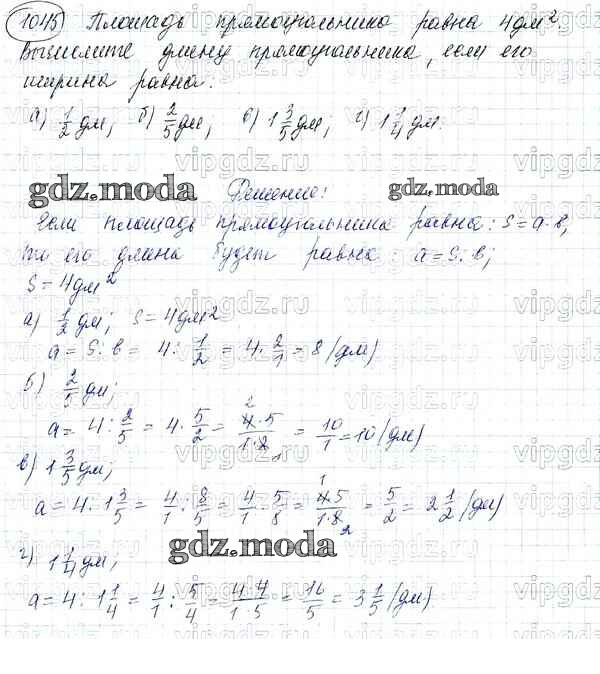 1045) Площадь прямоугольника равна 4дм².
Вычислите длину прямоугольника, если его
ширина равна:
а) 1/2 дм; б) 2/5 дм; в) 1 3/5 дм; г) 1 1/4 дм.
gdz.moda Решение: gdz.moda
Если площадь прямоугольника равна: S=a·b,
то его длина будет равна: a=S:b;
S=4дм²
а) 1/2 дм; S=4дм²
a=S:b = 4:1/2 = 4·2/1 = 8 (дм)
б) 2/5 дм;
a= 4:2/5 = 4·5/2 = 4·5/1·2 = 10/1 = 10 (дм)
в) 1 3/5 дм;
a= 4:1 3/5 = 4/1:8/5 = 4/1·5/8 = 4·5/1·8 = 5/2 = 2 1/2 (дм)
gdz.moda
г) 1 1/4 дм;
a= 4:1 1/4 = 4/1:5/4 = 4·4/1·5 = 16/5 = 3 1/5 (дм).
vipgdz.ru